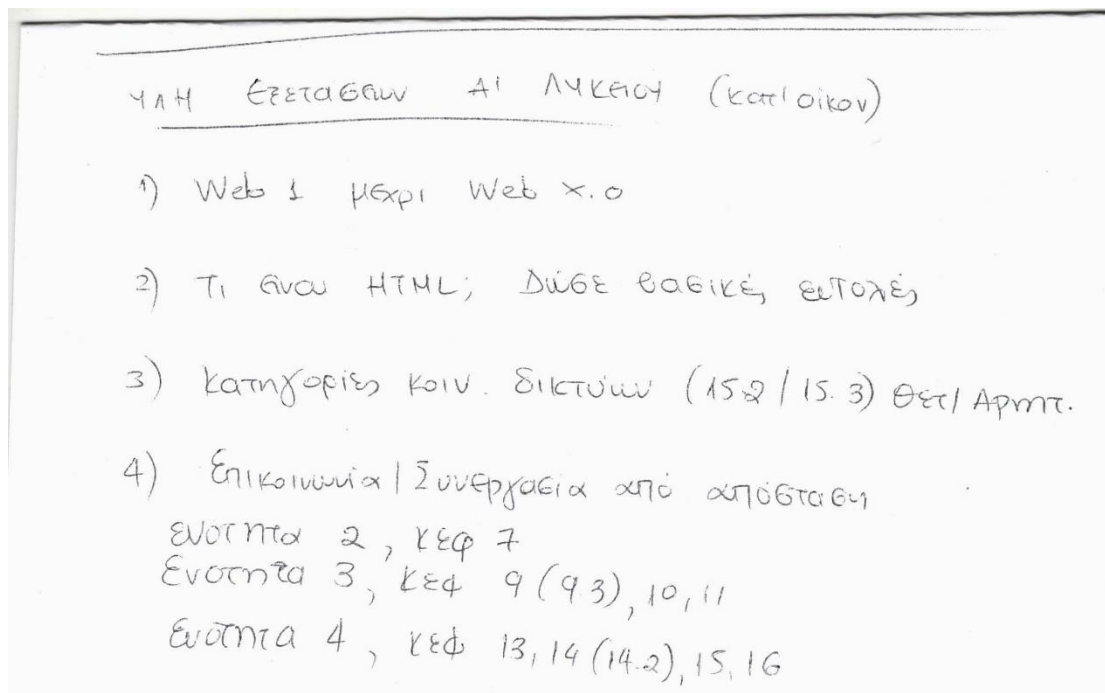 ΥΛΗ Εξετάσεων Α' Λυκείου (κατ' οίκον)
1) Web 1 μέχρι Web x.0
2) Τι είναι HTML; Δώσε βασικές εντολές
3) Κατηγορίες κοιν. δικτύων (15.2/15.3) Θετ/Αρνητ.
4) Επικοινωνία/Συνεργασία από απόσταση
ενότητα 2, κεφ 7
Ενότητα 3, κεφ 9 (9.3), 10, 11
ενότητα 4, κεφ 13, 14 (14.2), 15, 16